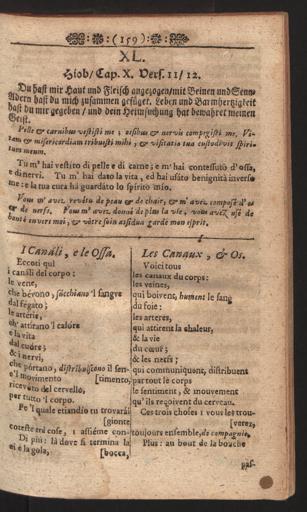 (159)
XL.
Hiob/ Cap. X. Vers. 11/ 12.
Du hast mir Haut und Fleisch angezogen/mit Beinen und Senn-
Adern hast du mich zusammen gefüget. Leben und Barmhertzigkeit
hast du mir gegeben / und dein Heimsuchung hat bewahret meinen
Geist.
Pelle & carnibus vestisti me; ossibus & nervis compegisti me. Vi-
tam & misericordiam tribuisti mihi, & visitatio tua custodivit spiri-
tum meum.
Tu m' hai vestito di pelle e di carne; e m' hai contessuto d' ossa,
e di nervi. Tu m' hai dato la vita, ed hai usato benignità inverso
me: e la tua cura hà guardàto lo spirito mio.
Vous m' avez revêtu de peau & de chair, & m' avez composé d' os
& de nerfs. Vous m' avez donné de plus la vie, vous avez usé de
bonté envers moi, & vôtre soin assidua gardé mon esprit.
I Canàli, e le Ossa.
Eccoti quì
i canàli del corpo:
le vene,
che bévono, sùcchiano 'l sangve
dal fégato;
le arterie,
ch' attìrano 'l calóre
e la vita
dal cuóre;
& i nervi,
che pòrtano, distribuìscono il sen-
e 'l movimento [timento,
ricevuto del cervello,
per tutto 'l corpo.
Pe 'l quale etiandìo tu trovarái
[gionte
coteste trè cose, i assiéme con-
Di più: là dove si termina la
ei e la gola, [bocca,
Les Canaux, & Os.
Voici tous
les canaux du corps:
les veines,
qui boivent, hument le sang
du foie:
les arteres,
qui attirent la chaleur,
& la vie
du cœur;
& les nerfs;
qui communiquent, distribuent
par tout le corps
le sentiment, & mouvement
qu' ils reçoivent du cerveau.
Ces trois choses i vous les trou-
[verez,
toujours ensemble, de compagnie.
Plus: au bout de la bouche
pas-